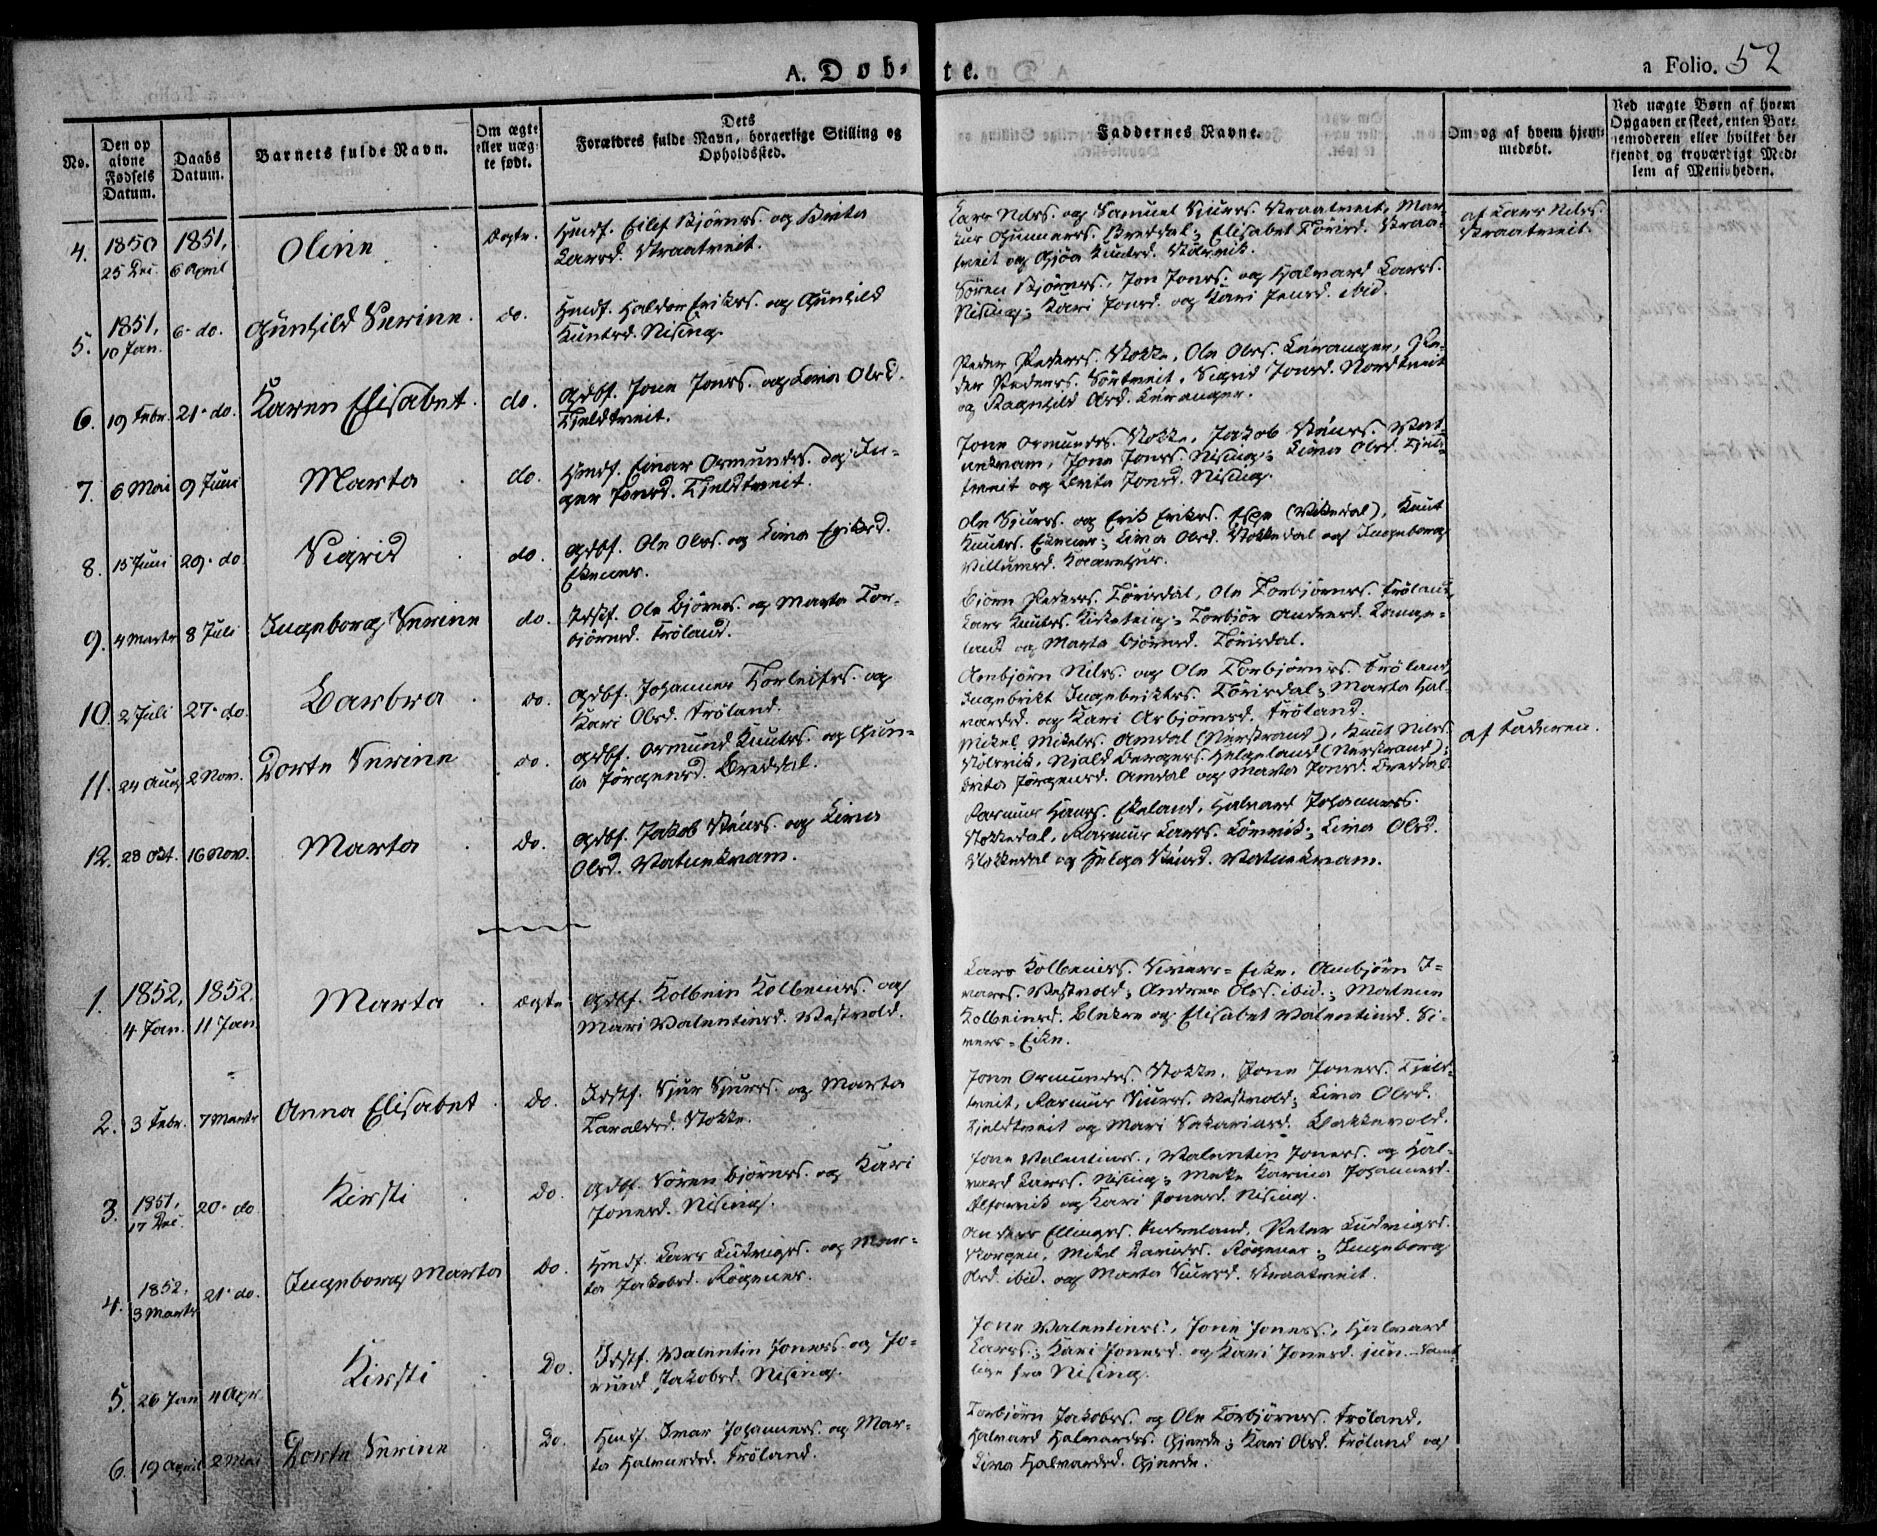 A. Døb= te.
a Folio. 52
No.
Den op
givne
Fødsels
Datum.
Daabs
Datum.
Barnets fulde Navn.
Om ægte
eller uæg
te født.
Dets
Forældres fulde Navn, borgerlige Stilling og
Opholdssted.
Faddernes Navne.
Om og af hvem hjem=
medøbt.
Ved uægte Børn af hvem
Opgaven er skeet, enten Bar=
nemoderen eller hvilket be=
kjendt og troværdigt Med=
lem af Menigheden.
4. 1850 25 Dec. 1851, 6 April Oline ægte. Huusf. Eilef Bjørnes. og Brita
Larsd. Straatveit.
Lars Nils. og Samuel Sjurs. Straatveit, Mar=
kus Gunners. Breddal; Elisabet Tørisd. Straa=
tveit og Gjøa Knutsd. Stølsvik.
af Lars Nils.
Straatveit.
5. 1851, 10 Jan. 6. do. Gunhild Serine. do. Huusf. Haldor Eriks. og Gunhild
Knutsd. Nising.
Søren Bjørnes., Jon Jones. og Halvard Lars.
Nising; Kari Jonsd. og Kari Jonsd. ibid.
6. 19 Febr. 21. do. Karen Elisabet. do. Grbf. Jone Jones. og Lina Olsd.
Fjeldtveit.
Peder Peders. Stokke, Ole Ols. Leiranger, Pe=
der Peders. Sørtveit, Sigrid Jonsd. Nordtveit
og Ragnhild Olsd. Leiranger.
7. 6 Mai 9 Juni Marta do. Huusf. Einar Ormunds. og In=
ger Jonsd. Fjeldtveit.
Jone Ormunds. Stokke, Jakob Steins. Vat=
nekvam, Jone Jones. Nising; Lina Olsd. Fjeld=
tveit og Brita Jonsd. Nising.
8. 15 Juni 29. do. Sigrid do. Grbf. Ole Ols. og Lina Eriksd.
Ekenes.
Ole Sjurs. og Erik Eriks. (Vikedal), Knut
Knuts. Ekenes; Lina Olsd. Stokkedal og Ingeborg
Villumsd. Kaarehus.
9. 4 Marts 8 Juli Ingeborg Serine do. Ole Bjørnes. og Marta Tor=
bjørnsd. Frøland.
Bjørn Peders. Tørisdal, Ole Torbjørnes. Frøland,
Lars Knuts. Kirketeig; Torbjør Andersd. Lange=
land og Marta Bjørnsd. Tørisdal.
10. 2 Juli 27. do. Barbra do. Grbf. Johannes Torleifs. og
Kari Olsd. Frøland.
Asbjørn Nils. og Ole Torbjørnes. Frøland,
Ingebrikt Ingebrikts. Tørisdal; Marta Hal=
vardsd. og Kari Asbjørnsd. Frøland.
11. 24 Aug 2 Nov. Dorte Serine do. Grbf. Ormund Knuts. og Gun=
la Jørgensd. Breddal.
Mikel Mikels. Amdal (Nerstrand), Knut Nils.
Stølsvik, Njæld Bergers. Helgeland (Nerstrand);
Brita Jørgensd. Amdal og Marta Jonsd. Breddal.
af Faderen.
12. 28 Okt. 16 Nov. Marta do. Grbf. Jakob Steins. og Lina
Olsd. Vatnekvam.
Rasmus Hans. Ekeland, Halvard Johannes.
Stokkedal, Rasmus Lars. Lønvik; Lina Olsd.
Stokkedal og Helga Steinsd. Vatnekvam.
1. 1852, 4 Jan. 1852. 11 Jan. Marta ægte Grbf. Kolbein Kolbeins. og
Mari Valentinsd. Vestvold.
Lars Kolbeins. Sivers=Eike, Asbjørn I=
vars. Vestvold; Anders Ols. ibid.; Malene
Kolbeinsd. Blekre og Elisabet Valentinsd. Si=
vers=Eike.
2. 3 Febr. 7 Marts Anna Elisabet do. Sjur Sjurs. og Marta
Taraldsd. Stokke.
Jone Ormunds. Stokke, Jone Jones. Fjeld=
tveit, Rasmus Sjurs. Vestvold; Lina Olsd.
Fjeldtveit og Mari Sakariasd. Bakkevold.
3. 1851, 17 Dec. 20. do Kirsti do. Grbf. Søren Bjørnes. og Kari
Jonesd. Nising.
Jone Valentins., Valentin Jones. og Hal=
vard Lars. Nising; Mette Karina Johannesd.
Alfsvik og Kari Jonesd. Nising.
4. 1852, 3 Marts 21. do. Ingeborg Marta do. Huusf. Lars Ludvigs. og Mar=
ta Jakobsd. Røgenes.
Anders Ellings. Peter Ludvigs.
Norgen, Mikel Røgenes; Ingeborg
Olsd. ibid. og Marta Sjursd. Straatveit.
5. 26 Jan 4 Apr. Kirsti do. Valentin Jones. og Jo=
rund Jakobsd. Nising.
Jone Valentins., Jone Jones., Halvard
Lars.; Kari Jonesd. og Kari Jonesd. jun. samt=
lige fra Nising.
6. 19 April 2 Mai Dorte Serine do. Huusf. Ivar Johannes. og Mar=
ta Halvardsd. Frøland.
Torbjørn Jakobs. og Ole Torbjørnes. Frøland,
Halvard Halvards. Gjerde; Kari Olsd. Frøland og
Lina Halvardsd. Gjerde.